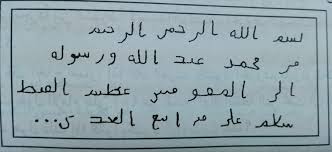 بسم الله الرحمن الرحيم
من محمد عبد الله ورسوله
الى المقوقس عظيم القبط
سلام على من اتبع الهدى ...